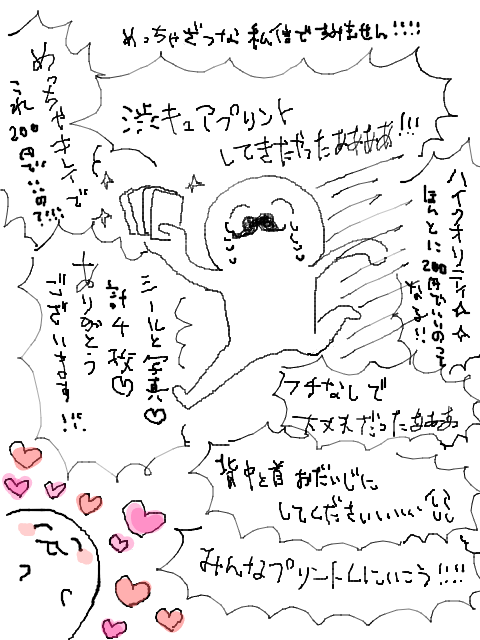 めっちゃざつな私信ですみません!!!!
めっちゃキレイで
これ200円で…いいので!!!!
渋キュアプリント
してきたやったああああ!!!
ハイクオリティ☆☆
ほんとに200円でいいのって
なる!!
シールと写真♡
計4枚♡
ありがとう
ございます!!
フチなしで
大丈夫だったあああ
背中と首おだいじに
してくださいいいい
みんなプリントしにいこう!!!!